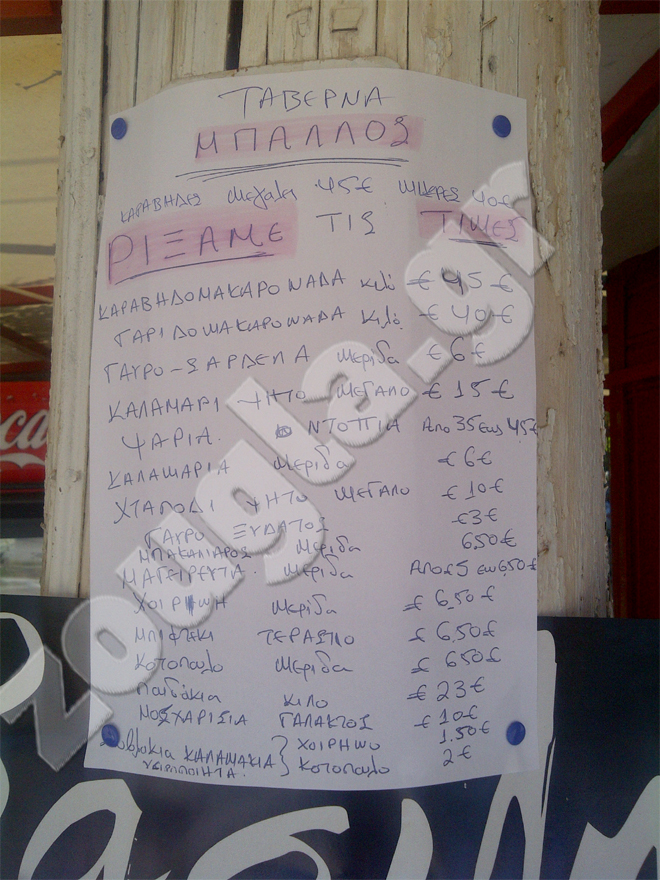 ΤΑΒΕΡΝΑ
ΜΠΑΛΛΟΣ
ΚΑΡΑΒΗΔΕΣ Μεγαλες 45€ ΜΙΚΡΕΣ 40€
ΡΙΞΑΜΕ ΤΙΣ ΤΙΜΕΣ
ΚΑΡΑΒΗΔΟΜΑΚΑΡΟΝΑΔΑ κιλό € 45 €
ΓΑΡΙΔΟΜΑΚΑΡΟΝΑΔΑ κιλό € 40 €
ΓΑΥΡΟ-ΣΑΡΔΕΛΑ Μερίδα € 6 €
ΚΑΛΑΜΑΡΙ ΨΗΤΟ ΜΕΓΑΛΟ € 15 €
ΨΑΡΙΑ ΝΤΟΠΙΑ Απο 35 εως 45€
ΚΑΛΑΜΑΡΙΑ Μερίδα € 6€
ΧΤΑΠΟΔΙ ΨΗΤΟ ΜΕΓΑΛΟ € 10€
ΓΑΥΡΟ ΞΥΔΑΤΟΣ €3€
ΜΠΑΚΑΛΙΑΡΟΣ Μερίδα 650€
ΜΑΓΕΙΡΕΥΤΑ Μερίδα Απο £5 εω 6,50€
ΧΟΙΡΙΝΗ Μερίδα € 6,50 €
ΜΠΙΦΤΕΚΙ ΤΕΡΑΣΤΙΟ £ 6,50€
Κοτοπουλο Μερίδα £ 650€
Παϊδάκια ΚΙΛΟ € 23 €
ΜΟΣΧΑΡΙΣΙΑ ΓΑΛΑΚΤΟΣ € 10€
Σουβλακια ΚΑΛΑΜΑΚΙΑ ΧΟΙΡΗΝΟ 1.50€
ΧΕΙΡΟΠΟΙΗΤΑ. Κοτοπουλο 2€
zougla.gr
ca